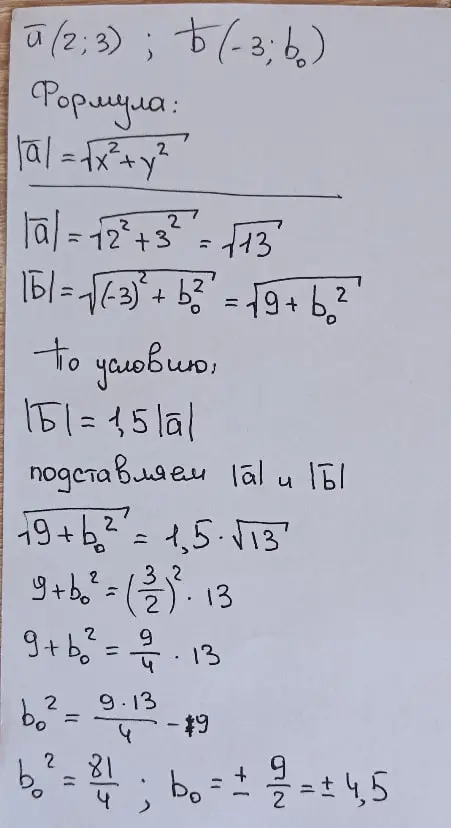 ā(2;3) ; b̄(-3;b₀)
Формула:
|ā|=√(x²+y²)
|ā|=√(2²+3²)=√13
|b̄|=√((-3)²+b₀²)=√(9+b₀²)
По условию,
|b̄|=1,5|ā|
подставляем |ā| и |b̄|
√(9+b₀²)=1,5·√13
9+b₀²=(3/2)²·13
9+b₀²=9/4·13
b₀²=9·13/4-9
b₀²=81/4; b₀=±9/2=±4,5